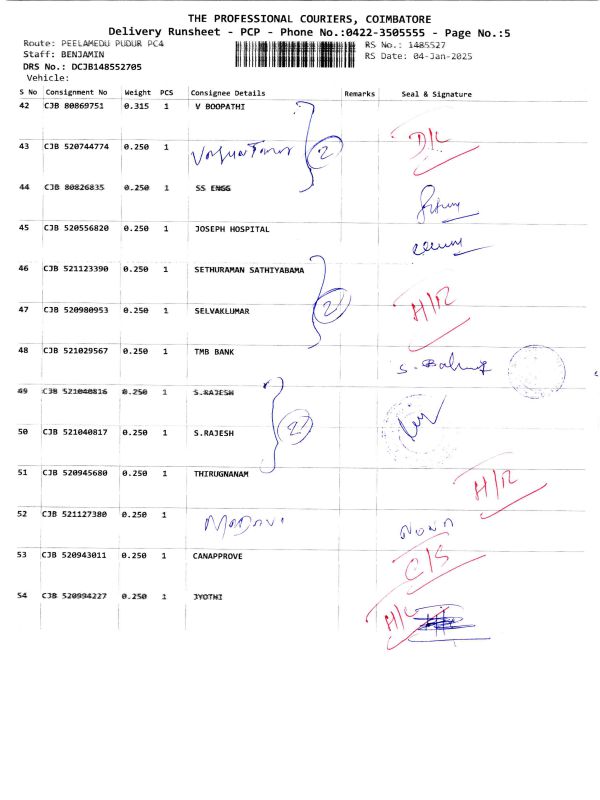 THE PROFESSIONAL COURIERS, COIMBATORE
Delivery Runsheet - PCP - Phone No.:0422-3505555 - Page No.:5
Route: PEELAMEDU PUDUR PC4 RS No.: 1485527
Staff: BENJAMIN RS Date: 04-Jan-2025
DRS No.: DCJB148552705
Vehicle:
S No Consignment No Weight PCS Consignee Details Remarks Seal & Signature
42 CJB 80869751 0.315 1 V BOOPATHI
43 CJB 520744774 0.250 1 2 D/L
44 CJB 80826835 0.250 1 SS ENGG
45 CJB 520556820 0.250 1 JOSEPH HOSPITAL
46 CJB 521123390 0.250 1 SETHURAMAN SATHIYABAMA
47 CJB 520980953 0.250 1 SELVAKLUMAR 2 H/R
48 CJB 521029567 0.250 1 TMB BANK
49 CJB 521040816 0.250 1 S.RAJESH
50 CJB 521040817 0.250 1 S.RAJESH 2
51 CJB 520945680 0.250 1 THIRUGNANAM H/R
52 CJB 521127380 0.250 1
53 CJB 520943011 0.250 1 CANAPPROVE C/S
54 CJB 520994227 0.250 1 JYOTHI H/L